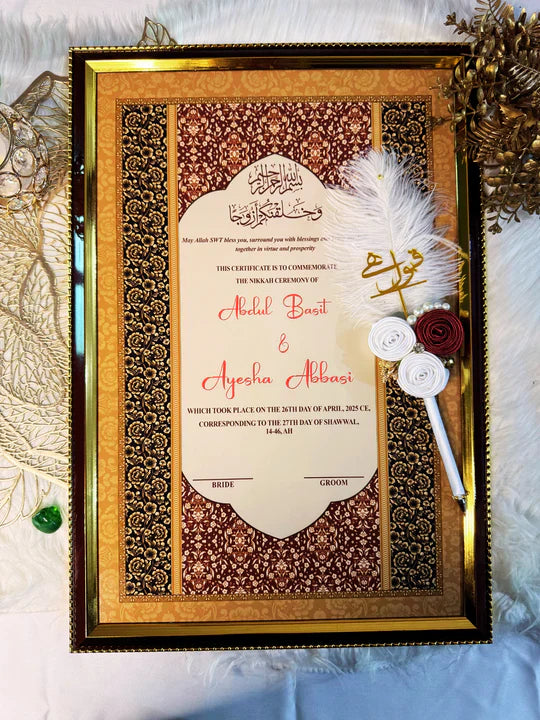 بسم الله الرحمن الرحيم
وخلقنكم أزوجا
May Allah SWT bless you, surround you with blessings
together in virtue and prosperity
THIS CERTIFICATE IS TO COMMEMORATE
THE NIKKAH CEREMONY OF
Abdul Basit
&
Ayesha Abbasi
WHICH TOOK PLACE ON THE 26TH DAY OF APRIL, 2025 CE,
CORRESPONDING TO THE 27TH DAY OF SHAWWAL,
14-46, AH
BRIDE
GROOM
قبول ہے